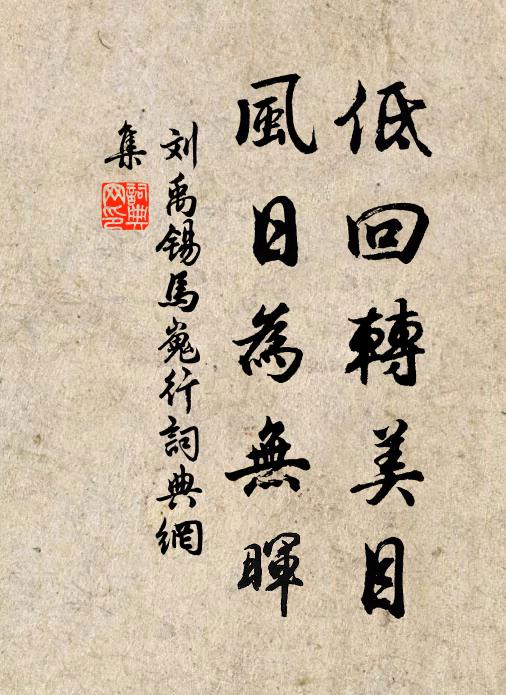 低回轉美目
風日為無暉
刘禹锡馬嵬行詞典網
集
詞典網印